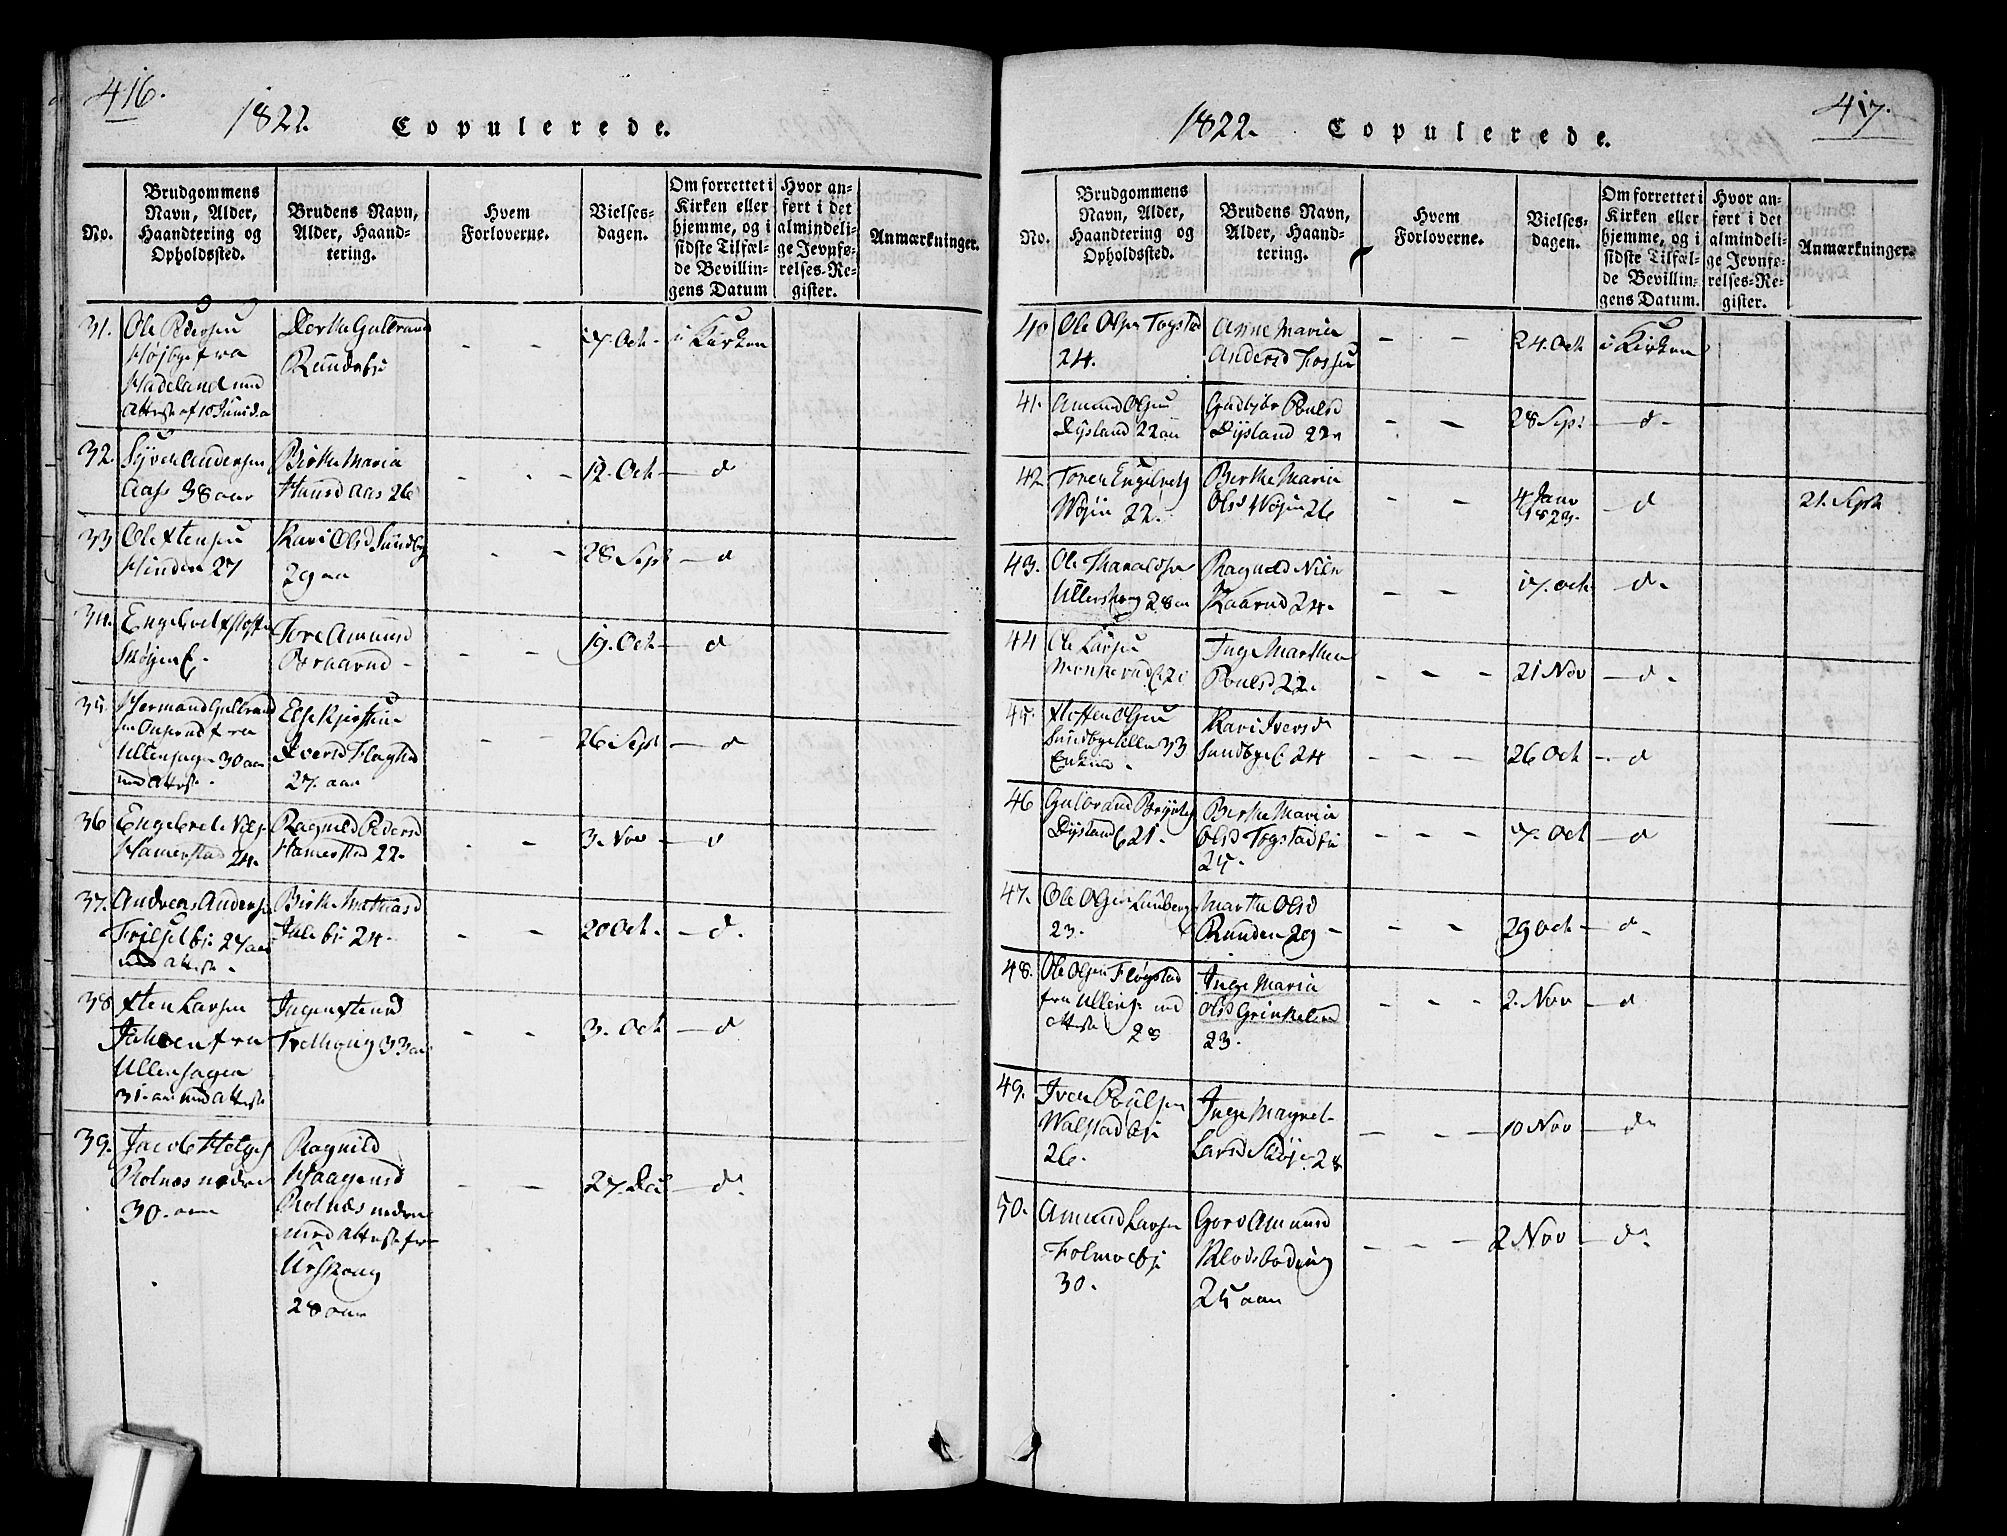 416.
1822. Copulerede.
No.
Brudgommens Navn, Alder, Haandtering og Opholdssted.
Brudens Navn, Alder, Haandtering.
Hvem Forloverne.
Vielsesdagen.
Om forrettet i Kirken eller hjemme, og i sidste Tilfælde Bevillingens Datum
Hvor anført i det almindelige Jevnførelses-Register.
Anmærkninger.
31. Ole Pedersen
Højbye fra
Hadeland med
Attest af 10 Juni
Dorthe Gulbrand
Rundebye
- - 17. Oct - i Kirken
32. Syver Andersen
Aass 38 aar
Birthe Maria
Hansd Aas 26
- - - 12. Oct - d
33 Ole
Hinden 27
Kari Olsd Sundby
29 aar
- - 28 Sept - d
34. Engebret
Tore Amund
Braarud -
- - 19. Oct - d
35. Herman Gulbrand
sen fra
Ullensager 30 aar
med Attest -
Else Kjerstine
Iversd Flogstad
27. aar
- - 26 Sept - d
36 Engebret Nils
Hamerstad 24.
Ragnild Pedersd
Hamerstad 22.
- - 3. Nov - d
37. Andreas Anders
27 aar
med Attest -
Birthe Mathiasd
24.
- - 20 Oct. - d.
38 Sten Larsen
fra
Ullensager
31. aar med Attest
Ingen
33 aar
- - 3. Oct - d
39. Jacob Helges
Rolnæs nedre
30. aar
Ragnild
Haagensd
Rolnæs nedre
med Attest fra
Urskoug
28 aar
- - 27. Dec - d.
417.
1822. Copulerede.
No.
Brudgommens Navn, Alder, Haandtering og Opholdssted.
Brudens Navn, Alder, Haandtering.
Hvem Forloverne.
Vielsesdagen.
Om forrettet i Kirken eller hjemme, og i sidste Tilfælde Bevillingens Datum.
Hvor anført i det almindelige Jevnførelses-Register.
Anmærkninger.
40 Ole Olsen Togstad
24.
Anne Maria
Andersd Fosser
- - 24. Oct i Kirken
41. Amund Olsen
Dysland 22 aar
Gudbjør Poulsd
Dysland 22
- - 28 Sept - d -
42 Tore Engebrets
Wøjen 22.
Berthe Maria
Olsd Wøjen 26
- - 4 Janv 1823. - d 21. Sept
43. Ole Haraldsen
Ullershoug 28
Ragnild Nils
Kaarud 24.
- - 17. Oct - d.
44 Ole Larsen
21
Inge Marthea
Poulsd 22.
- - - 21 Nov - d.
45. Olsen
Sundbye 33
Enkem -
Kari Iversd
Sundbye 24
- - - 26 Oct - d
46 Gulbrand Brynils
Dysland 21.
Berthe Maria
Olsd Togstad
25.
- - - 17. Oct - d
47. Ole Olsen Lundberg
23.
Marthe Olsd
Runden 29
- - - 29 Oct - d.
48. Ole Olsen Flogstad
fra Ullens med
Attest 28
Inge Maria
Olsd Grinkelsrud
23.
- - - 2. Nov - d
49. Iver Poulsen
Walstadbye
26.
Inge Magret
Larsd 28
- - - 10 Nov - d.
50. Amund Larsen
30.
Goro Amunsd
25 aar
- - - 2 Nov - d.